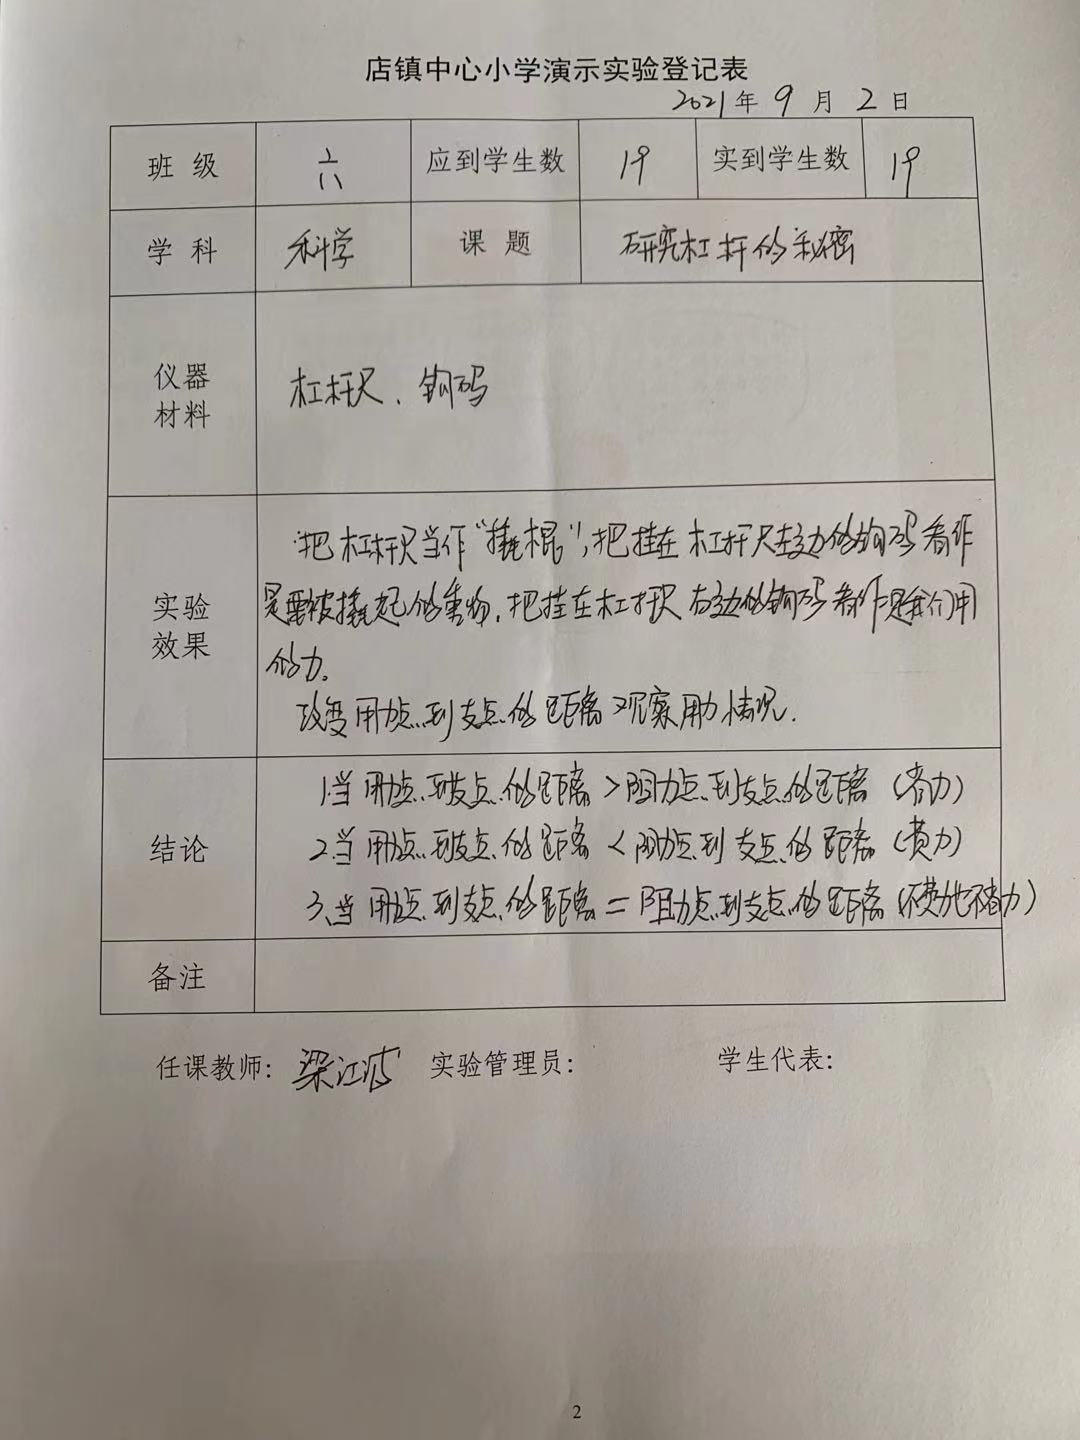 店镇中心小学演示实验登记表
2021年 9 月 2 日
班 级 六 应到学生数 19 实到学生数 19
学 科 科学 课 题 研究杠杆的秘密
仪器
材料
杠杆尺、钩码
实验
效果
把杠杆尺当作“撬棍”,把挂在杠杆尺左边的钩码看作
是需被撬起的重物,把挂在杠杆尺右边的钩码看作是我们用
的力。
改变用力点到支点的距离观察用力情况.
结论
1.当用力点到支点的距离>阻力点到支点的距离(省力)
2.当用力点到支点的距离<阻力点到支点的距离(费力)
3.当用力点到支点的距离=阻力点到支点的距离(不费力也不省力)
备注
任课教师:梁江波 实验管理员: 学生代表:
2